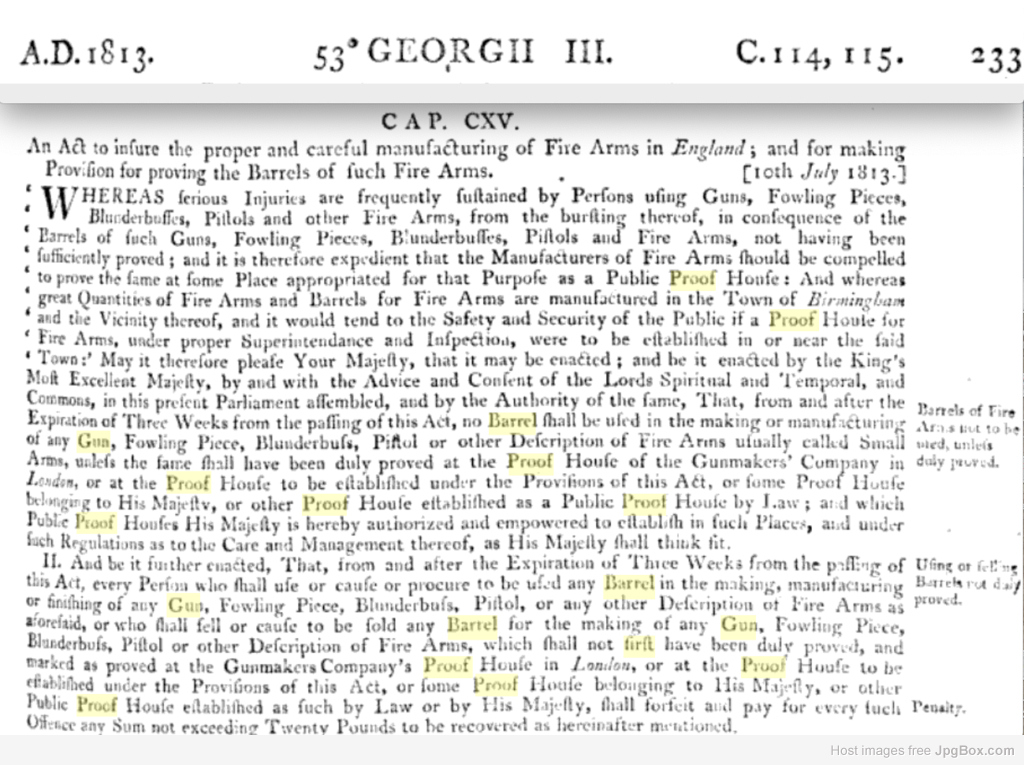 A.D. 1813. 53° GEORGII III. C. 114, 115. 233
CAP. CXV.
An Act to insure the proper and careful manufacturing of Fire Arms in England; and for making
Provision for proving the Barrels of such Fire Arms. [10th July 1813.]
‘ WHEREAS ſerious Injuries are frequently ſuſtained by Perſons uſing Guns, Fowling Pieces,
‘ Blunderbuſſes, Piſtols and other Fire Arms, from the burſting thereof, in conſequence of the
‘ Barrels of ſuch Guns, Fowling Pieces, Blunderbuſſes, Piſtols and Fire Arms, not having been
‘ ſufficiently proved; and it is therefore expedient that the Manufacturers of Fire Arms ſhould be compelled
‘ to prove the ſame at ſome Place appropriated for that Purpoſe as a Public Proof Houſe: And whereas
‘ great Quantities of Fire Arms and Barrels for Fire Arms are manufactured in the Town of Birmingham
‘ and the Vicinity thereof, and it would tend to the Safety and Security of the Public if a Proof Houſe for
‘ Fire Arms, under proper Superintendance and Inſpection, were to be eſtabliſhed in or near the ſaid
‘ Town:’ May it therefore pleaſe Your Majeſty, that it may be enacted; and be it enacted by the King's
Moſt Excellent Majeſty, by and with the Advice and Conſent of the Lords Spiritual and Temporal, and
Commons, in this preſent Parliament aſſembled, and by the Authority of the ſame, That, from and after the
Expiration of Three Weeks from the paſſing of this Act, no Barrel ſhall be uſed in the making or manufacturing
of any Gun, Fowling Piece, Blunderbuſs, Piſtol or other Deſcription of Fire Arms uſually called Small
Arms, unleſs the ſame ſhall have been duly proved at the Proof Houſe of the Gunmakers' Company in
London, or at the Proof Houſe to be eſtabliſhed under the Proviſions of this Act, or ſome Proof Houſe
belonging to His Majeſty, or other Proof Houſe eſtabliſhed as a Public Proof Houſe by Law; and which
Public Proof Houſes His Majeſty is hereby authorized and empowered to eſtabliſh in ſuch Places, and under
ſuch Regulations as to the Care and Management thereof, as His Majeſty ſhall think fit.
Barrels of Fire
Arms not to be
used, unleſs
duly proved.
II. And be it further enacted, That, from and after the Expiration of Three Weeks from the paſſing of
this Act, every Perſon who ſhall uſe or cauſe or procure to be uſed any Barrel in the making, manufacturing
or finiſhing of any Gun, Fowling Piece, Blunderbuſs, Piſtol, or any other Deſcription of Fire Arms as
aforeſaid, or who ſhall ſell or cauſe to be ſold any Barrel for the making of any Gun, Fowling Piece,
Blunderbuſs, Piſtol or other Deſcription of Fire Arms, which ſhall not firſt have been duly proved, and
marked as proved at the Gunmakers Company's Proof Houſe in London, or at the Proof Houſe to be
eſtabliſhed under the Proviſions of this Act, or ſome Proof Houſe belonging to His Majeſty, or other
Public Proof Houſe eſtabliſhed as ſuch by Law or by His Majeſty, ſhall forfeit and pay for every ſuch
Offence any Sum not exceeding Twenty Pounds to be recovered as hereinafter mentioned.
Uſing or ſelling
Barrels not duly
proved.
Penalty.
Host images free JpgBox.com